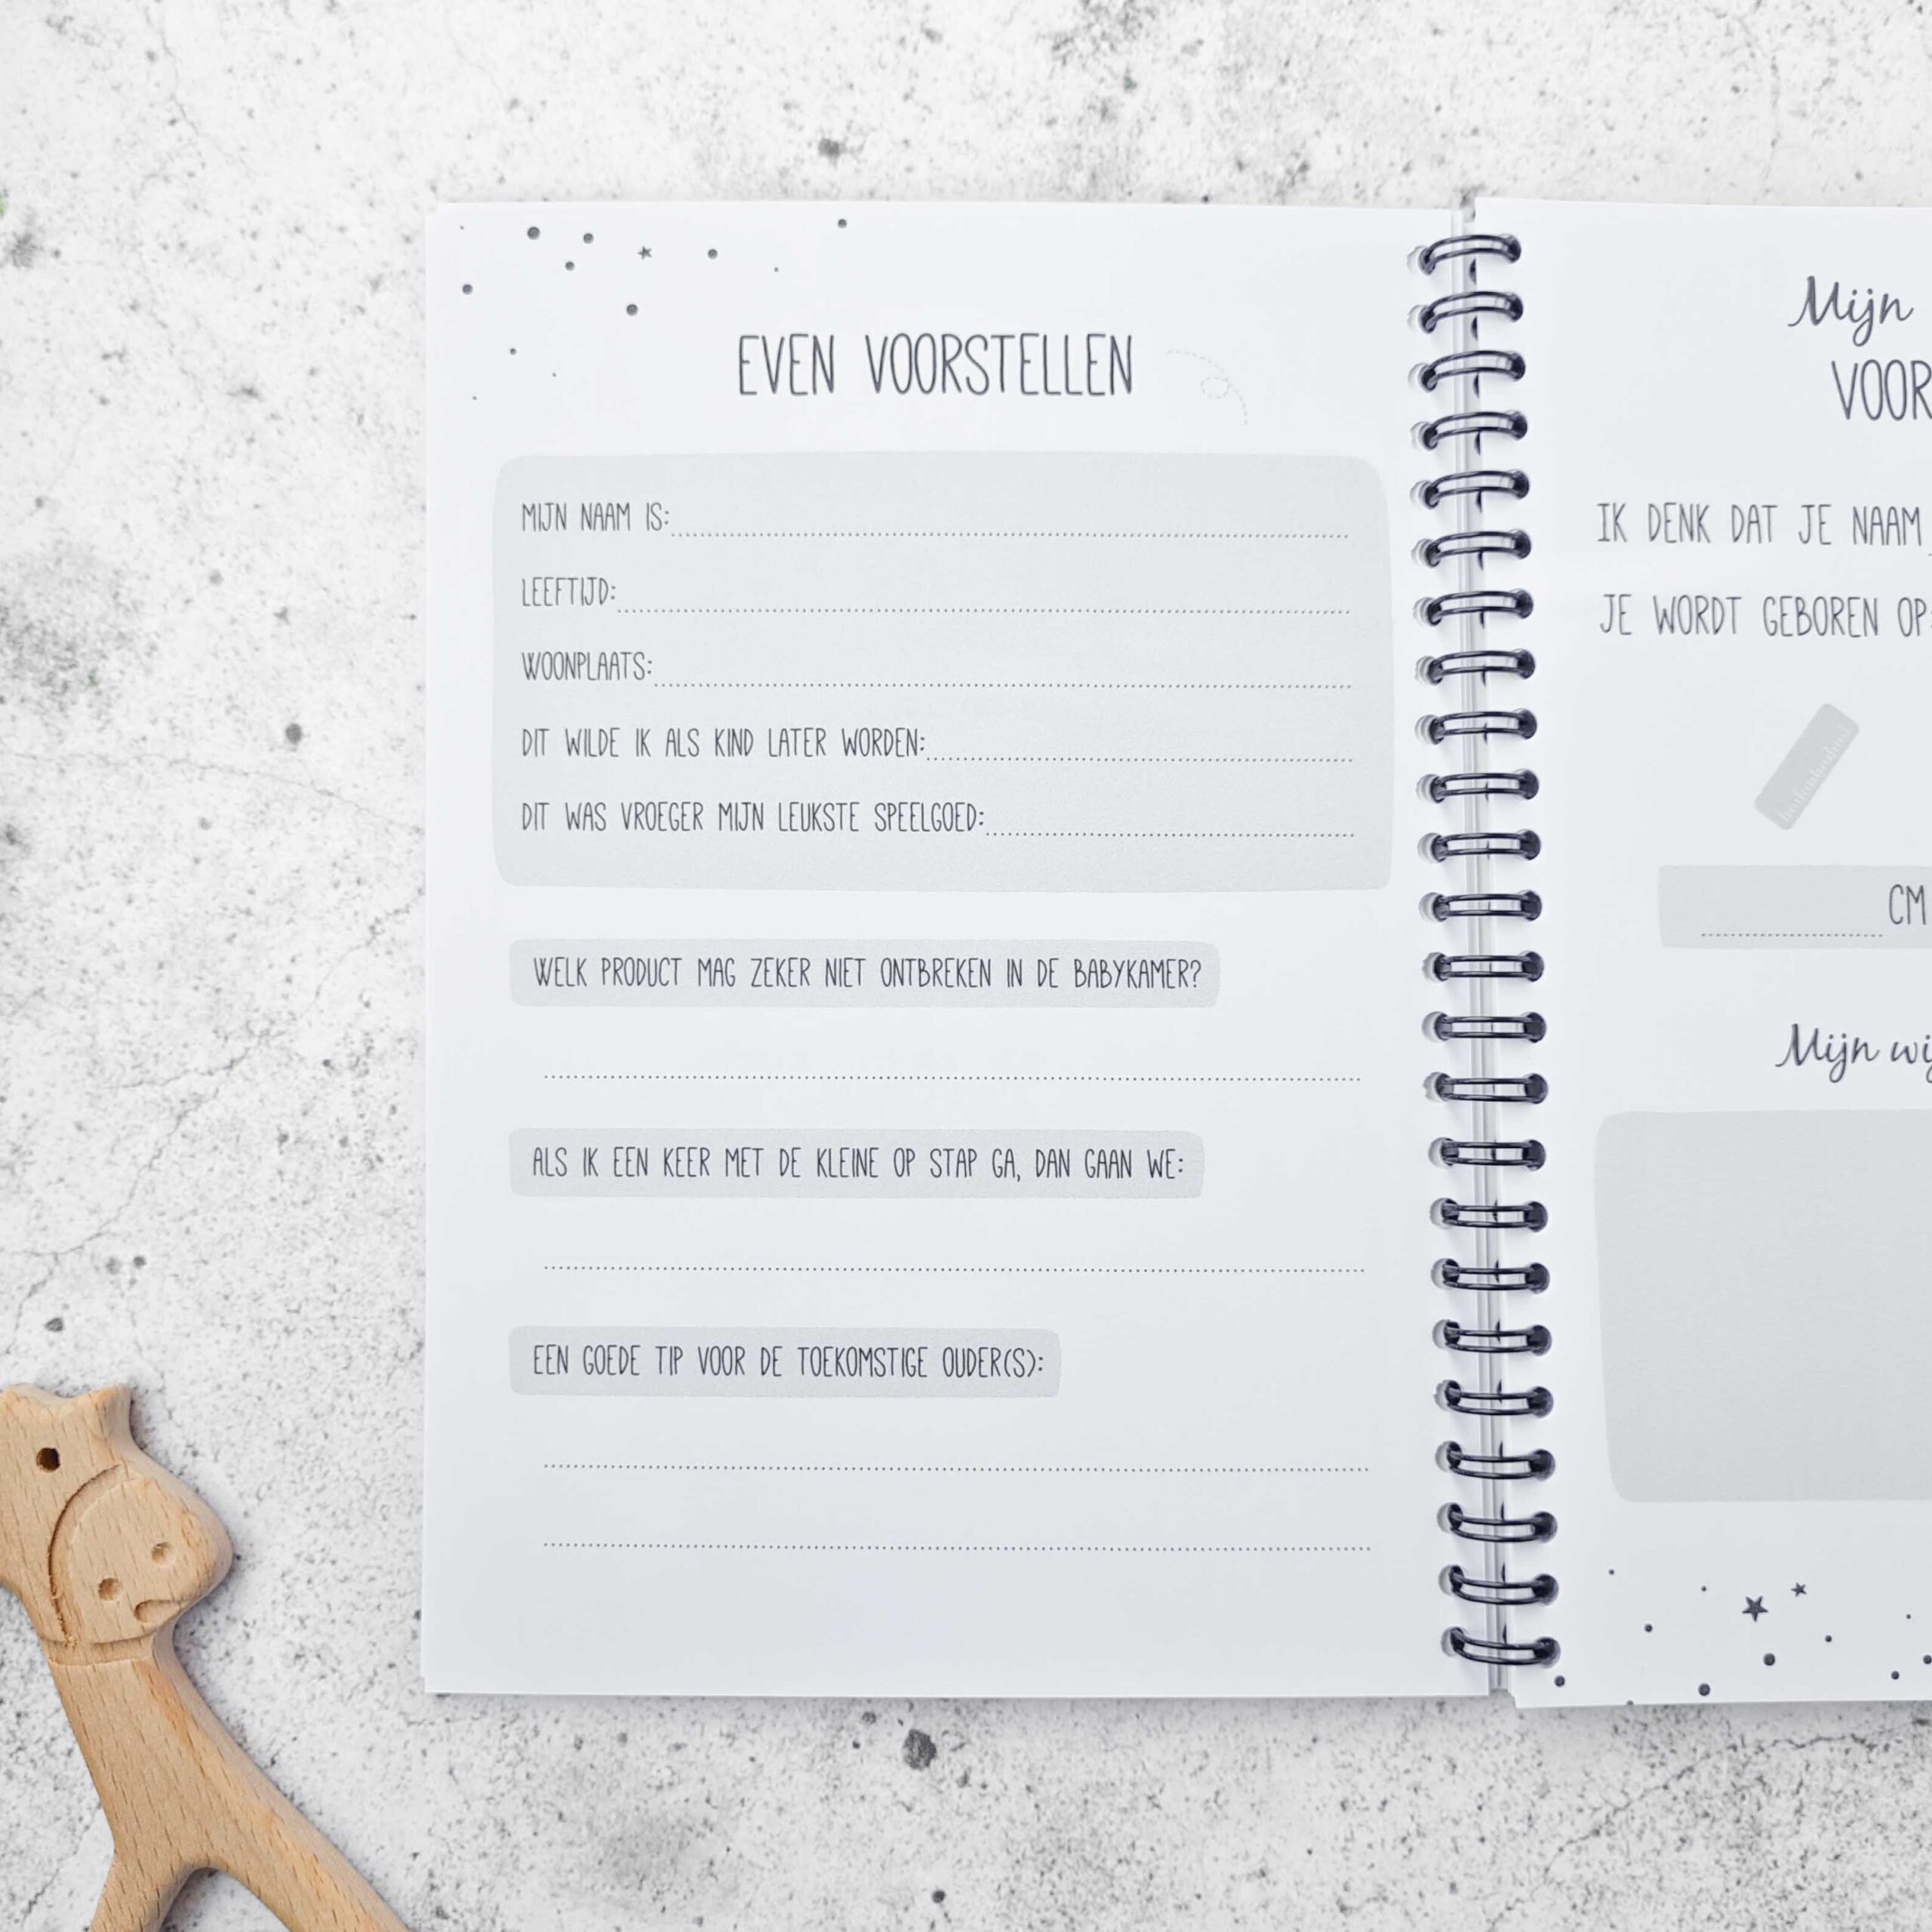 EVEN VOORSTELLEN
MIJN NAAM IS:
LEEFTIJD:
WOONPLAATS:
DIT WILDE IK ALS KIND LATER WORDEN:
DIT WAS VROEGER MIJN LEUKSTE SPEELGOED:
WELK PRODUCT MAG ZEKER NIET ONTBREKEN IN DE BABYKAMER?
ALS IK EEN KEER MET DE KLEINE OP STAP GA, DAN GAAN WE:
EEN GOEDE TIP VOOR DE TOEKOMSTIGE OUDER(S):
Mijn
IK DENK DAT JE NAAM
JE WORDT GEBOREN OP:
CM
Mijn